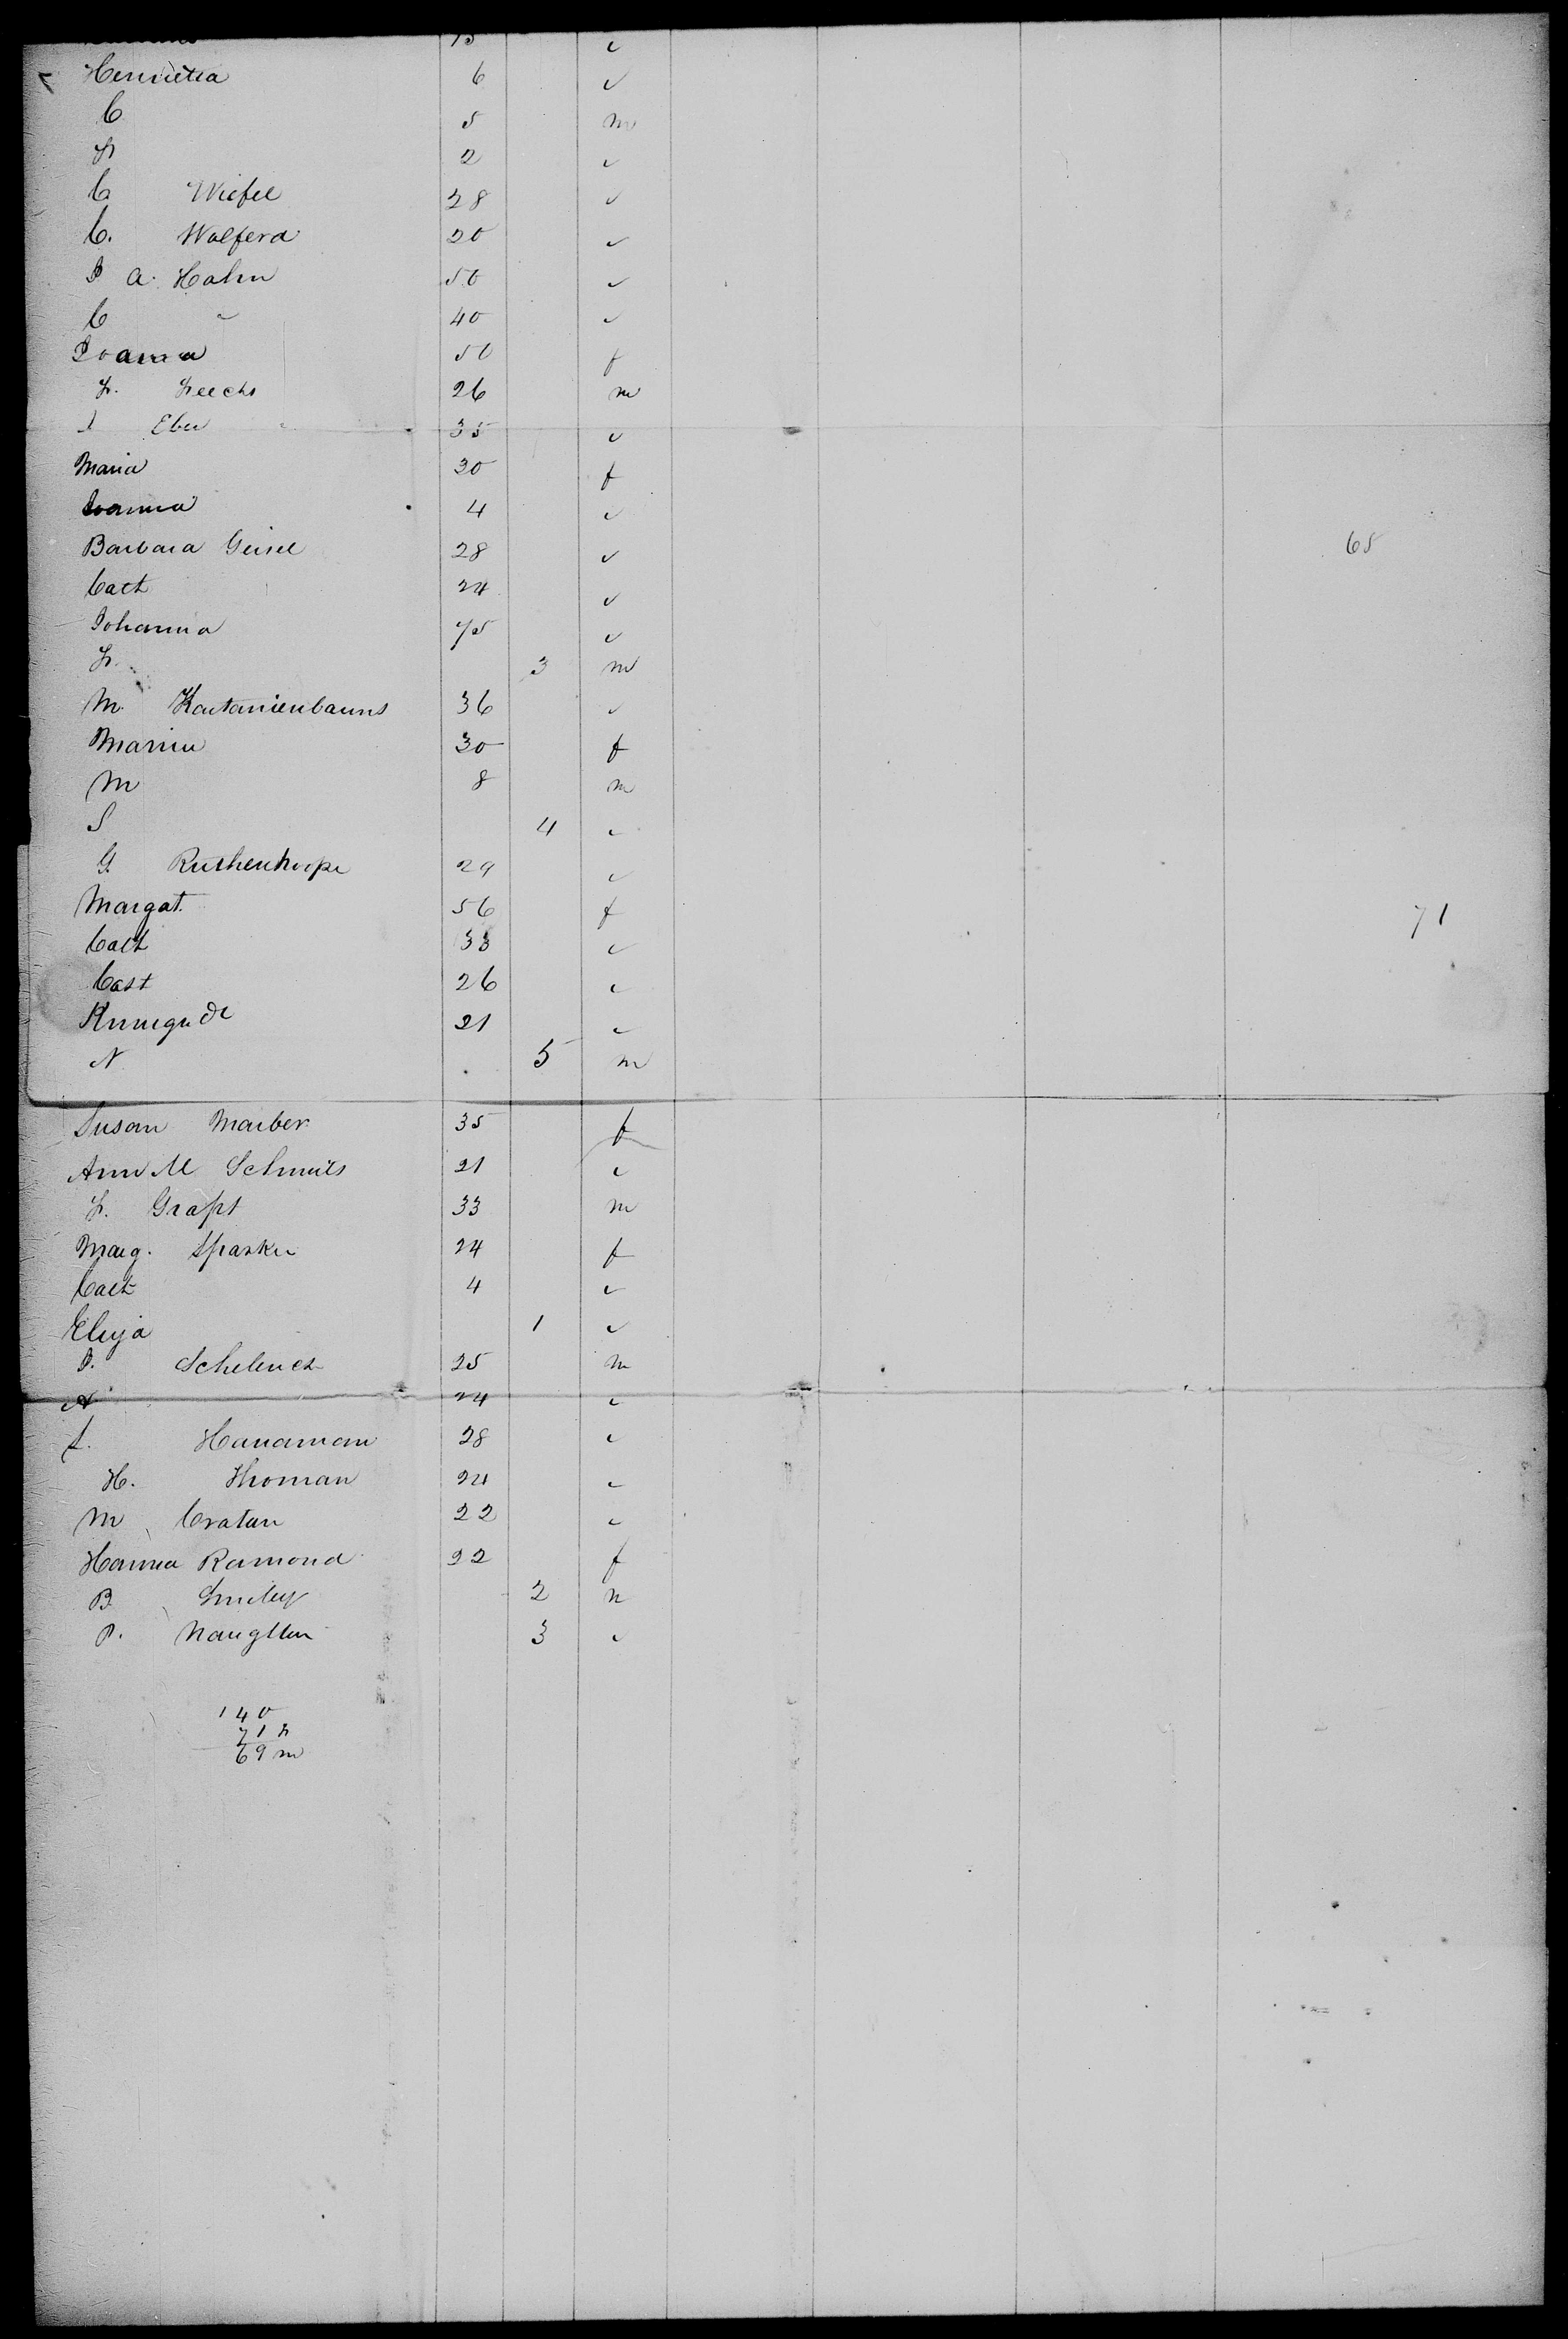 15 "
Henrietta 6 "
C 5 m
Fr 2 "
C. Wiefel 28 "
C. Walferd 20 "
J A. Hahn 50 "
C " 40 "
Joanna 50 f
Fr. Feechs 26 m
J Eber 35 "
Maria 30 f
Joanna 4 "
Barbara Geisel 28 " 65
Cath 24 "
Johanna 75 "
Fr. 3 m
M. Kastanienbaums 36 "
Marina 30 f
M 8 m
S 4 "
G. Rushenhoope 29 "
Margat. 56 f 71
Cath 33 "
Cast 26 "
Kunegude 21 "
N 5 m
Susan Marber 35 f
Ann M Schmits 21 "
Fr. Grapt 33 m
Marg. Sparker 24 f
Cath 4 "
Eliza 1 "
J. Schelenes 25 m
A. 24 "
f. Hanaman 28 "
H. Thoman 24 "
M Cratan 22 "
Hanna Ramond 22 f
B. Smiley 2 m
P. Naughten 3 "
140
71 fr
69 m